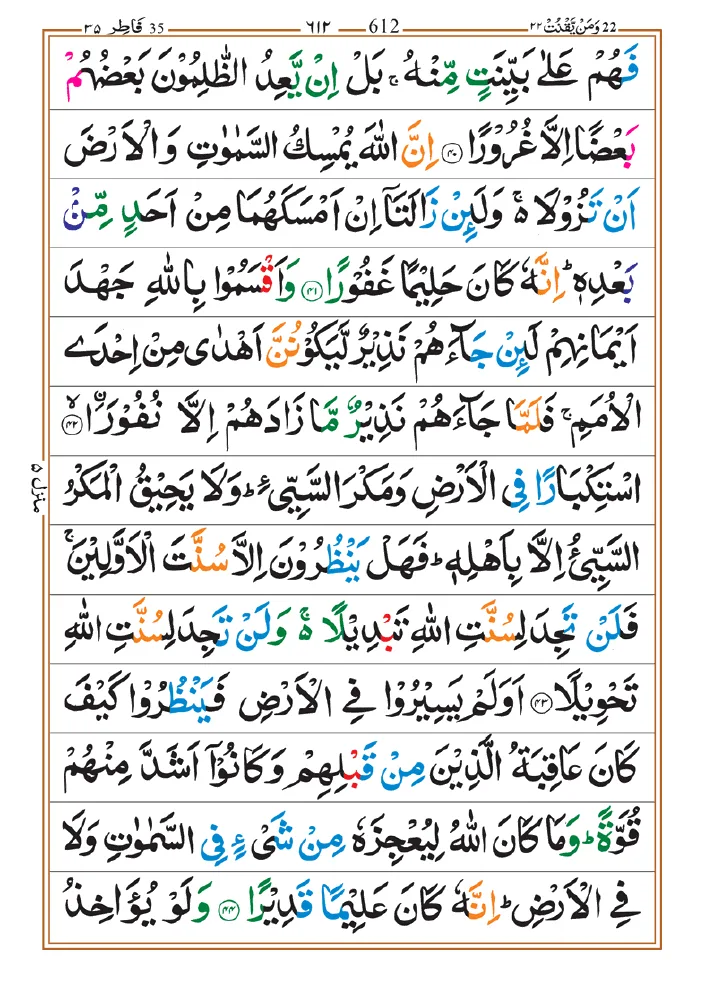 35 فَاطِر ٣٥ ٦١٢ 612 22 وَمَنْ يَّقْنُتْ ٢٢
فَهُمْ عَلٰى بَيِّنَتٍ مِّنْهُ ۚ بَلْ اِنْ يَّعِدُ الظّٰلِمُوْنَ بَعْضُهُمْ
بَعْضًا اِلَّا غُرُوْرًا ۝۴۰ اِنَّ اللّٰهَ يُمْسِكُ السَّمٰوٰتِ وَالْاَرْضَ
اَنْ تَزُوْلَا ۚ۬ وَلَىِٕنْ زَالَتَاۤ اِنْ اَمْسَكَهُمَا مِنْ اَحَدٍ مِّنْۢ
بَعْدِهٖ ؕ اِنَّهٗ كَانَ حَلِيْمًا غَفُوْرًا ۝۴۱ وَاَقْسَمُوْا بِاللّٰهِ جَهْدَ
اَيْمَانِهِمْ لَىِٕنْ جَآءَهُمْ نَذِيْرٌ لَّيَكُوْنُنَّ اَهْدٰى مِنْ اِحْدَى
الْاُمَمِ ۚ فَلَمَّا جَآءَهُمْ نَذِيْرٌ مَّا زَادَهُمْ اِلَّا نُفُوْرَاۨ ۝۴۲ۙ
اسْتِكْبَارًا فِى الْاَرْضِ وَمَكْرَ السَّيِّئِ ؕ وَلَا يَحِيْقُ الْمَكْرُ
السَّيِّئُ اِلَّا بِاَهْلِهٖ ؕ فَهَلْ يَنْظُرُوْنَ اِلَّا سُنَّتَ الْاَوَّلِيْنَ ۚ
فَلَنْ تَجِدَ لِسُنَّتِ اللّٰهِ تَبْدِيْلًا ۚ۬ وَلَنْ تَجِدَ لِسُنَّتِ اللّٰهِ
تَحْوِيْلًا ۝۴۳ اَوَلَمْ يَسِيْرُوْا فِى الْاَرْضِ فَيَنْظُرُوْا كَيْفَ
كَانَ عَاقِبَةُ الَّذِيْنَ مِنْ قَبْلِهِمْ وَكَانُوْۤا اَشَدَّ مِنْهُمْ
قُوَّةً ؕ وَمَا كَانَ اللّٰهُ لِيُعْجِزَهٗ مِنْ شَىْءٍ فِى السَّمٰوٰتِ وَلَا
فِى الْاَرْضِ ؕ اِنَّهٗ كَانَ عَلِيْمًا قَدِيْرًا ۝۴۴ وَلَوْ يُؤَاخِذُ
منزل ۵